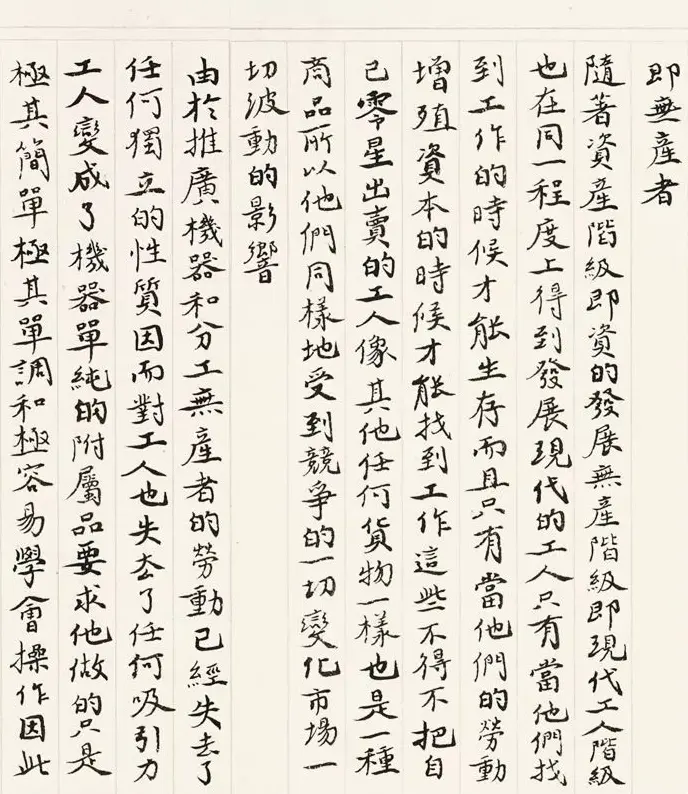 即無產者
隨著資產階級即資的發展無產階級即現代工人階級
也在同一程度上得到發展現代的工人只有當他們找
到工作的時候才能生存而且只有當他們的勞動
增殖資本的時候才能找到工作這些不得不把自
己零星出賣的工人像其他任何貨物一樣也是一種
商品所以他們同樣地受到競爭的一切變化市場一
切波動的影響
由於推廣機器和分工無產者的勞動已經失去了
任何獨立的性質因而對工人也失去了任何吸引力
工人變成了機器單純的附屬品要求他做的只是
極其簡單極其單調和極容易學會操作因此